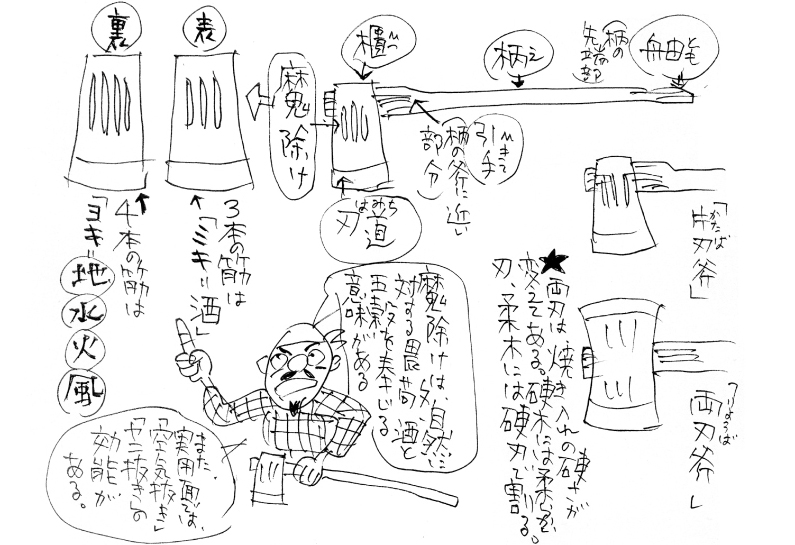 舳
とも
柄の
先端部
柄
え
櫃
ひつ
引手
ひきて
柄の斧に近い
部分
魔除け
表
裏
刃道
はみち
「片刃斧」
かたば
「両刃斧」
りょうば
★両刃は焼き入れの硬さが
変えてある。硬木には柔い
刃、柔木には硬刃で割る。
3本の筋は
「ミキ=酒」
4本の筋は
「ヨキ=
地
水
火
風
魔除けは、自然に
対する畏 酒と
五穀を奉じる
意味がある
また、
実用面では、
「空気抜き」
「ヤニ抜き」の
効能が
ある。